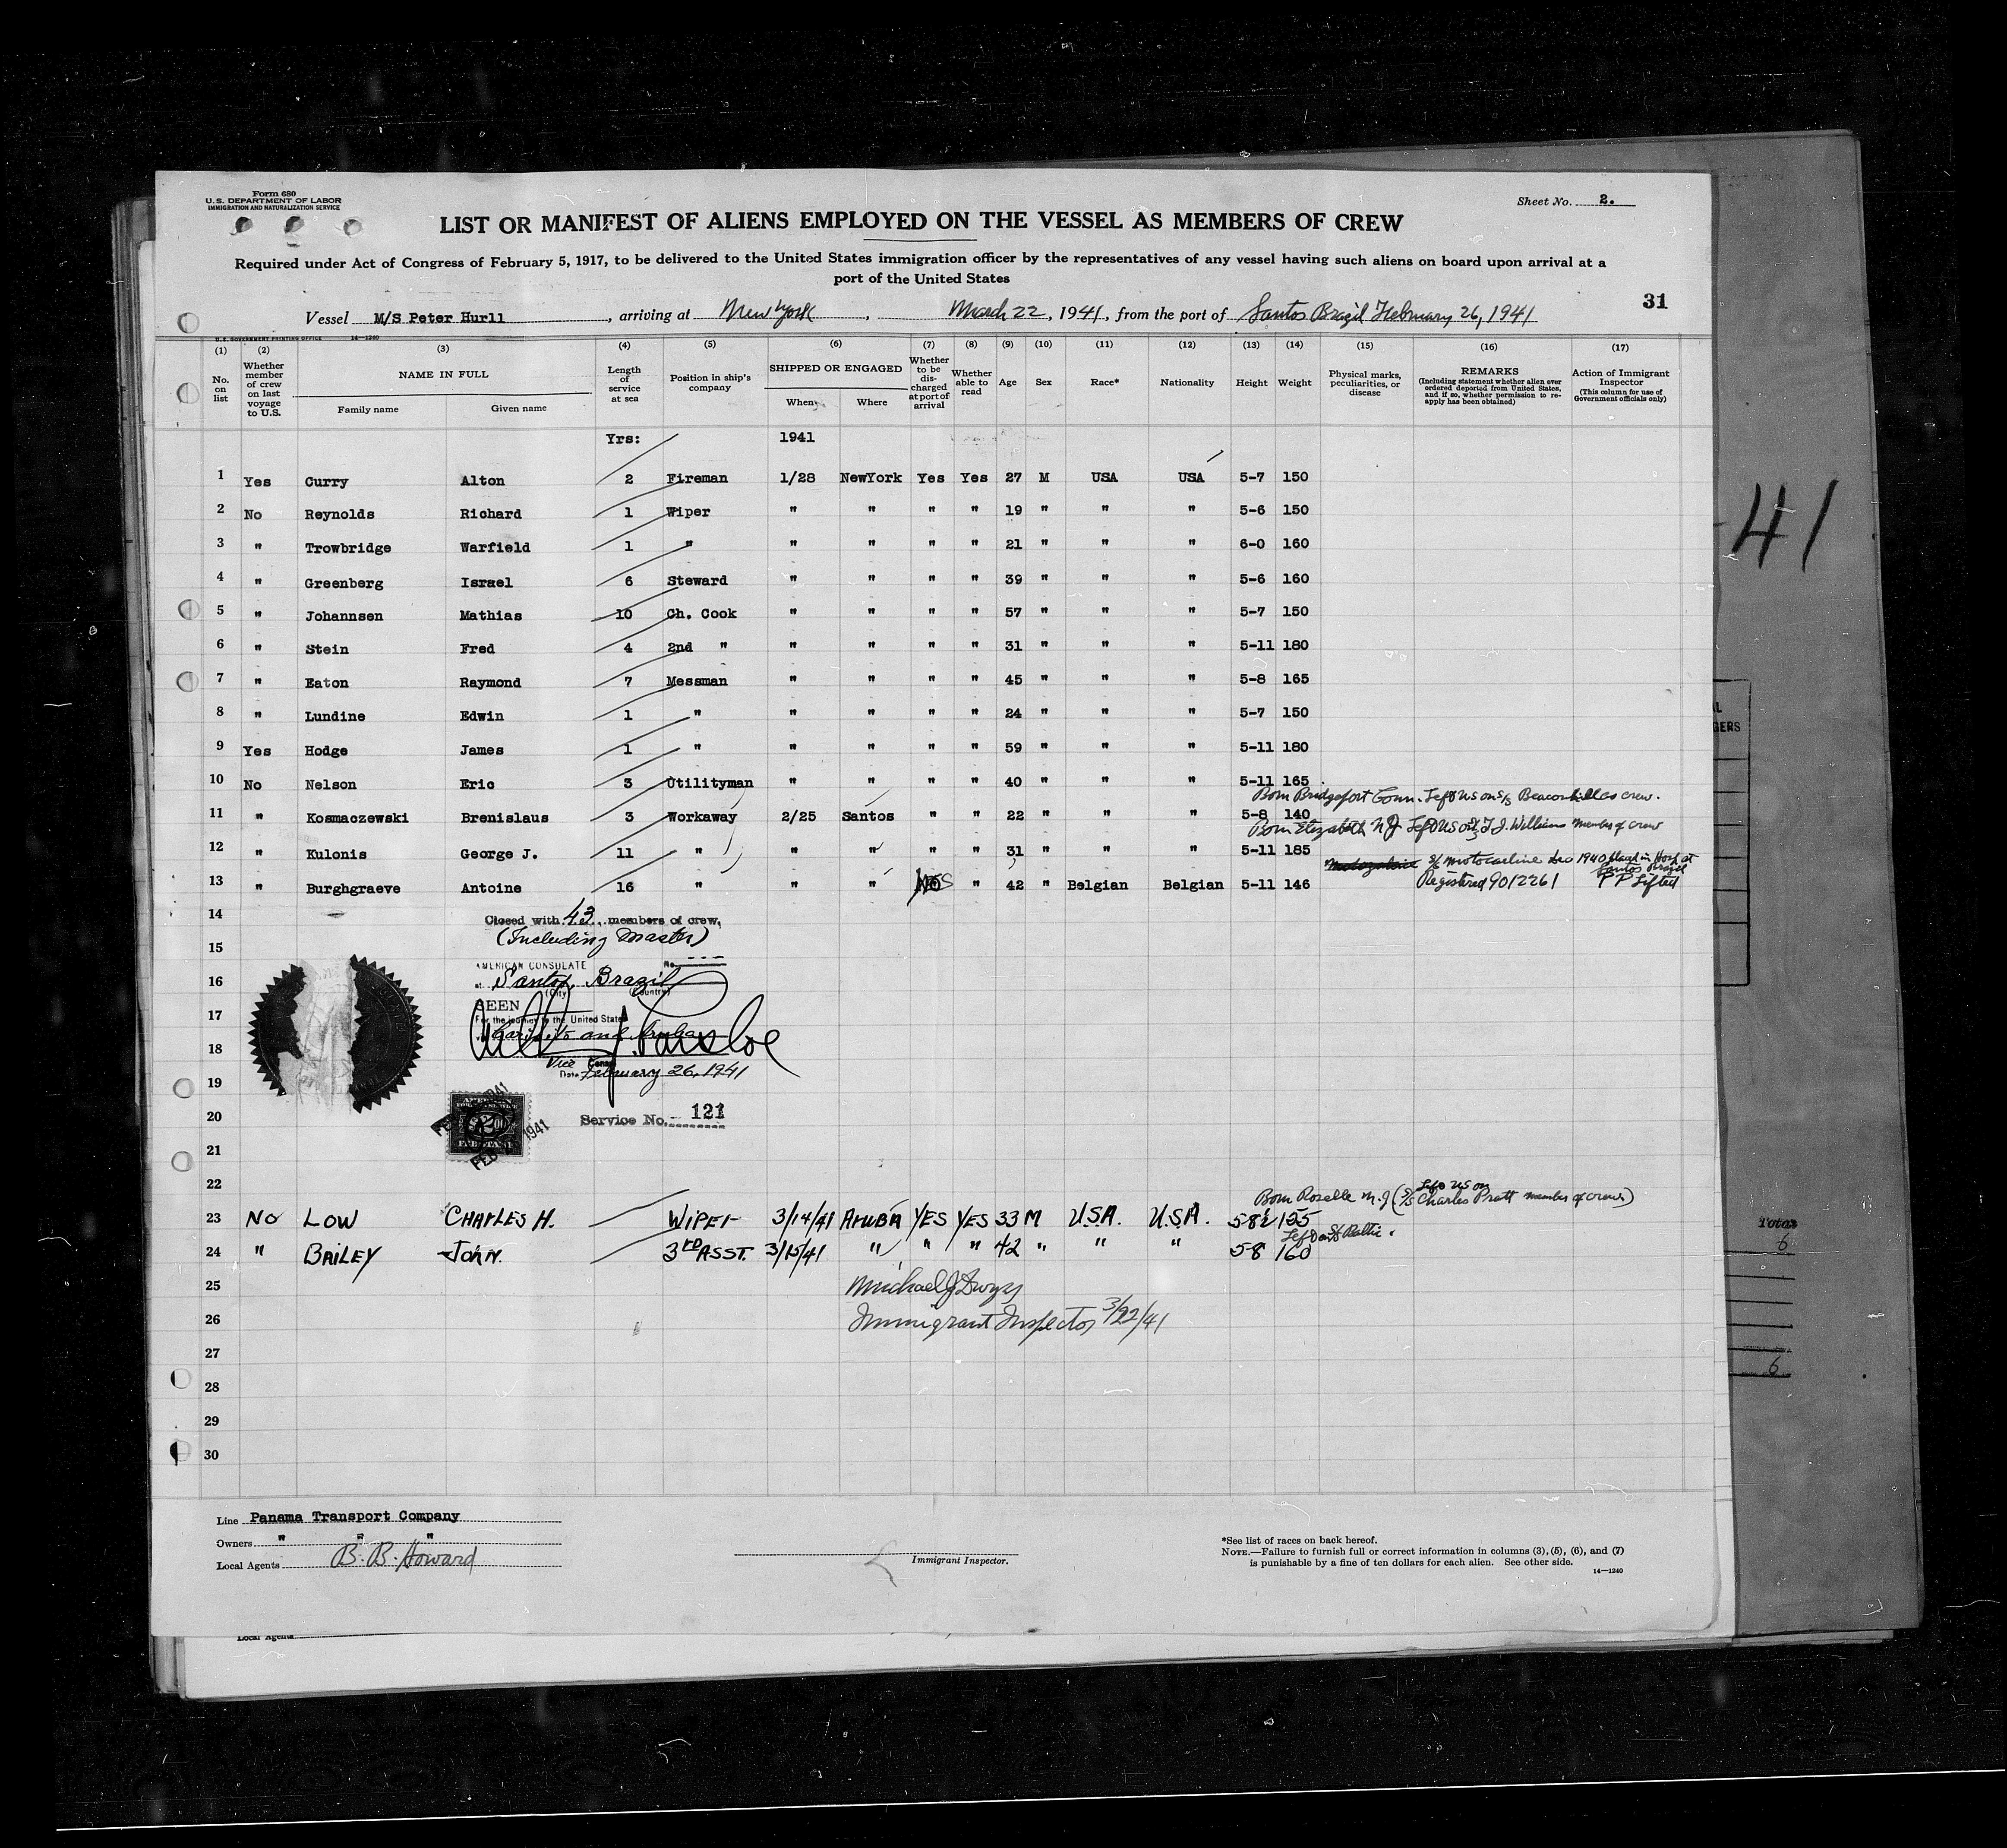 Form 680
U.S. DEPARTMENT OF LABOR
IMMIGRATION AND NATURALIZATION SERVICE
Sheet No. 2.
LIST OR MANIFEST OF ALIENS EMPLOYED ON THE VESSEL AS MEMBERS OF CREW
Required under Act of Congress of February 5, 1917, to be delivered to the United States immigration officer by the representatives of any vessel having such aliens on board upon arrival at a
port of the United States
31
Vessel M/S Peter Hurll, arriving at New York, March 22, 1941, from the port of Santos Brazil February 26, 1941
U.S. GOVERNMENT PRINTING OFFICE 14—1240
(1) (2) (3) (4) (5) (6) (7) (8) (9) (10) (11) (12) (13) (14) (15) (16) (17)
No. on list
Whether member of crew on last voyage to U.S.
NAME IN FULL
Family name Given name
Length of service at sea
Position in ship's company
SHIPPED OR ENGAGED
When Where
Whether to be discharged at port of arrival
Whether able to read
Age Sex Race* Nationality Height Weight
Physical marks, peculiarities, or disease
REMARKS
(Including statement whether alien ever ordered deported from United States, and if so, whether permission to reapply has been obtained)
Action of Immigrant Inspector
(This column for use of Government officials only)
Yrs: 1941
1 Yes Curry Alton 2 Fireman 1/28 NewYork Yes Yes 27 M USA USA 5-7 150
2 No Reynolds Richard 1 Wiper " " " " 19 " " " 5-6 150
3 " Trowbridge Warfield 1 " " " " " 21 " " " 6-0 160
4 " Greenberg Israel 6 Steward " " " " 39 " " " 5-6 160
5 " Johannsen Mathias 10 Ch. Cook " " " " 57 " " " 5-7 150
6 " Stein Fred 4 2nd " " " " " 31 " " " 5-11 180
7 " Eaton Raymond 7 Messman " " " " 45 " " " 5-8 165
8 " Lundine Edwin 1 " " " " " 24 " " " 5-7 150
9 Yes Hodge James 1 " " " " " 59 " " " 5-11 180
10 No Nelson Eric 3 Utilityman " " " " 40 " " " 5-11 165
Born Bridgeport Conn. Left US on S/S Beaconhill as crew.
11 " Kosmaczewski Brenislaus 3 Workaway 2/25 Santos " " 22 " " " 5-8 140
Born Elizabeth NJ Left US on S/S J. Williams member of crew
12 " Kulonis George J. 11 " " " " " 31 " " " 5-11 185
S/S Motocarline Dec 1940 in Hosp at
Santos Brazil
13 " Burghgraeve Antoine 16 " " " Yes " 42 " Belgian Belgian 5-11 146 Registered 9012261 PP Lifted
14
Closed with 43 members of crew,
15
(Including Master)
AMERICAN CONSULATE No. ---
16
at Santos, Brazil
(City) (Country)
SEEN
17
For the journey to the United States
18
Vice Consul
Date February 26, 1941
19
20
Service No. 121
FEB 1941
21
22
Left US on
Born Roselle N.J (S/S Charles Pratt member of crew)
23 No LOW CHARLES H. WIPER 3/14/41 ARUBA YES YES 33 M U.S.A. U.S.A. 5 8½ 155
Left on S/S Baltic.
24 " BAILEY JOHN. 3RD ASST. 3/15/41 " " " 42 " " " 5 8 160
25 Michael J
26 Immigrant Inspector 3/22/41
27
28
29
30
Line Panama Transport Company
Owners " " "
Local Agents B. B. Howard
Immigrant Inspector.
*See list of races on back hereof.
NOTE.—Failure to furnish full or correct information in columns (3), (5), (6), and (7)
is punishable by a fine of ten dollars for each alien. See other side.
14—1240
Local Agents
41
GERS
Total
6
6